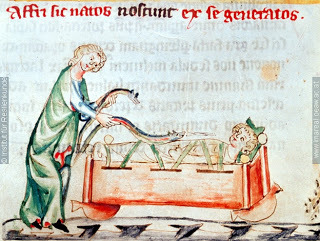 Affri sic natos noscunt ex se generatos.
© Institut für Realienkunde
www.imareal.oeaw.ac.at